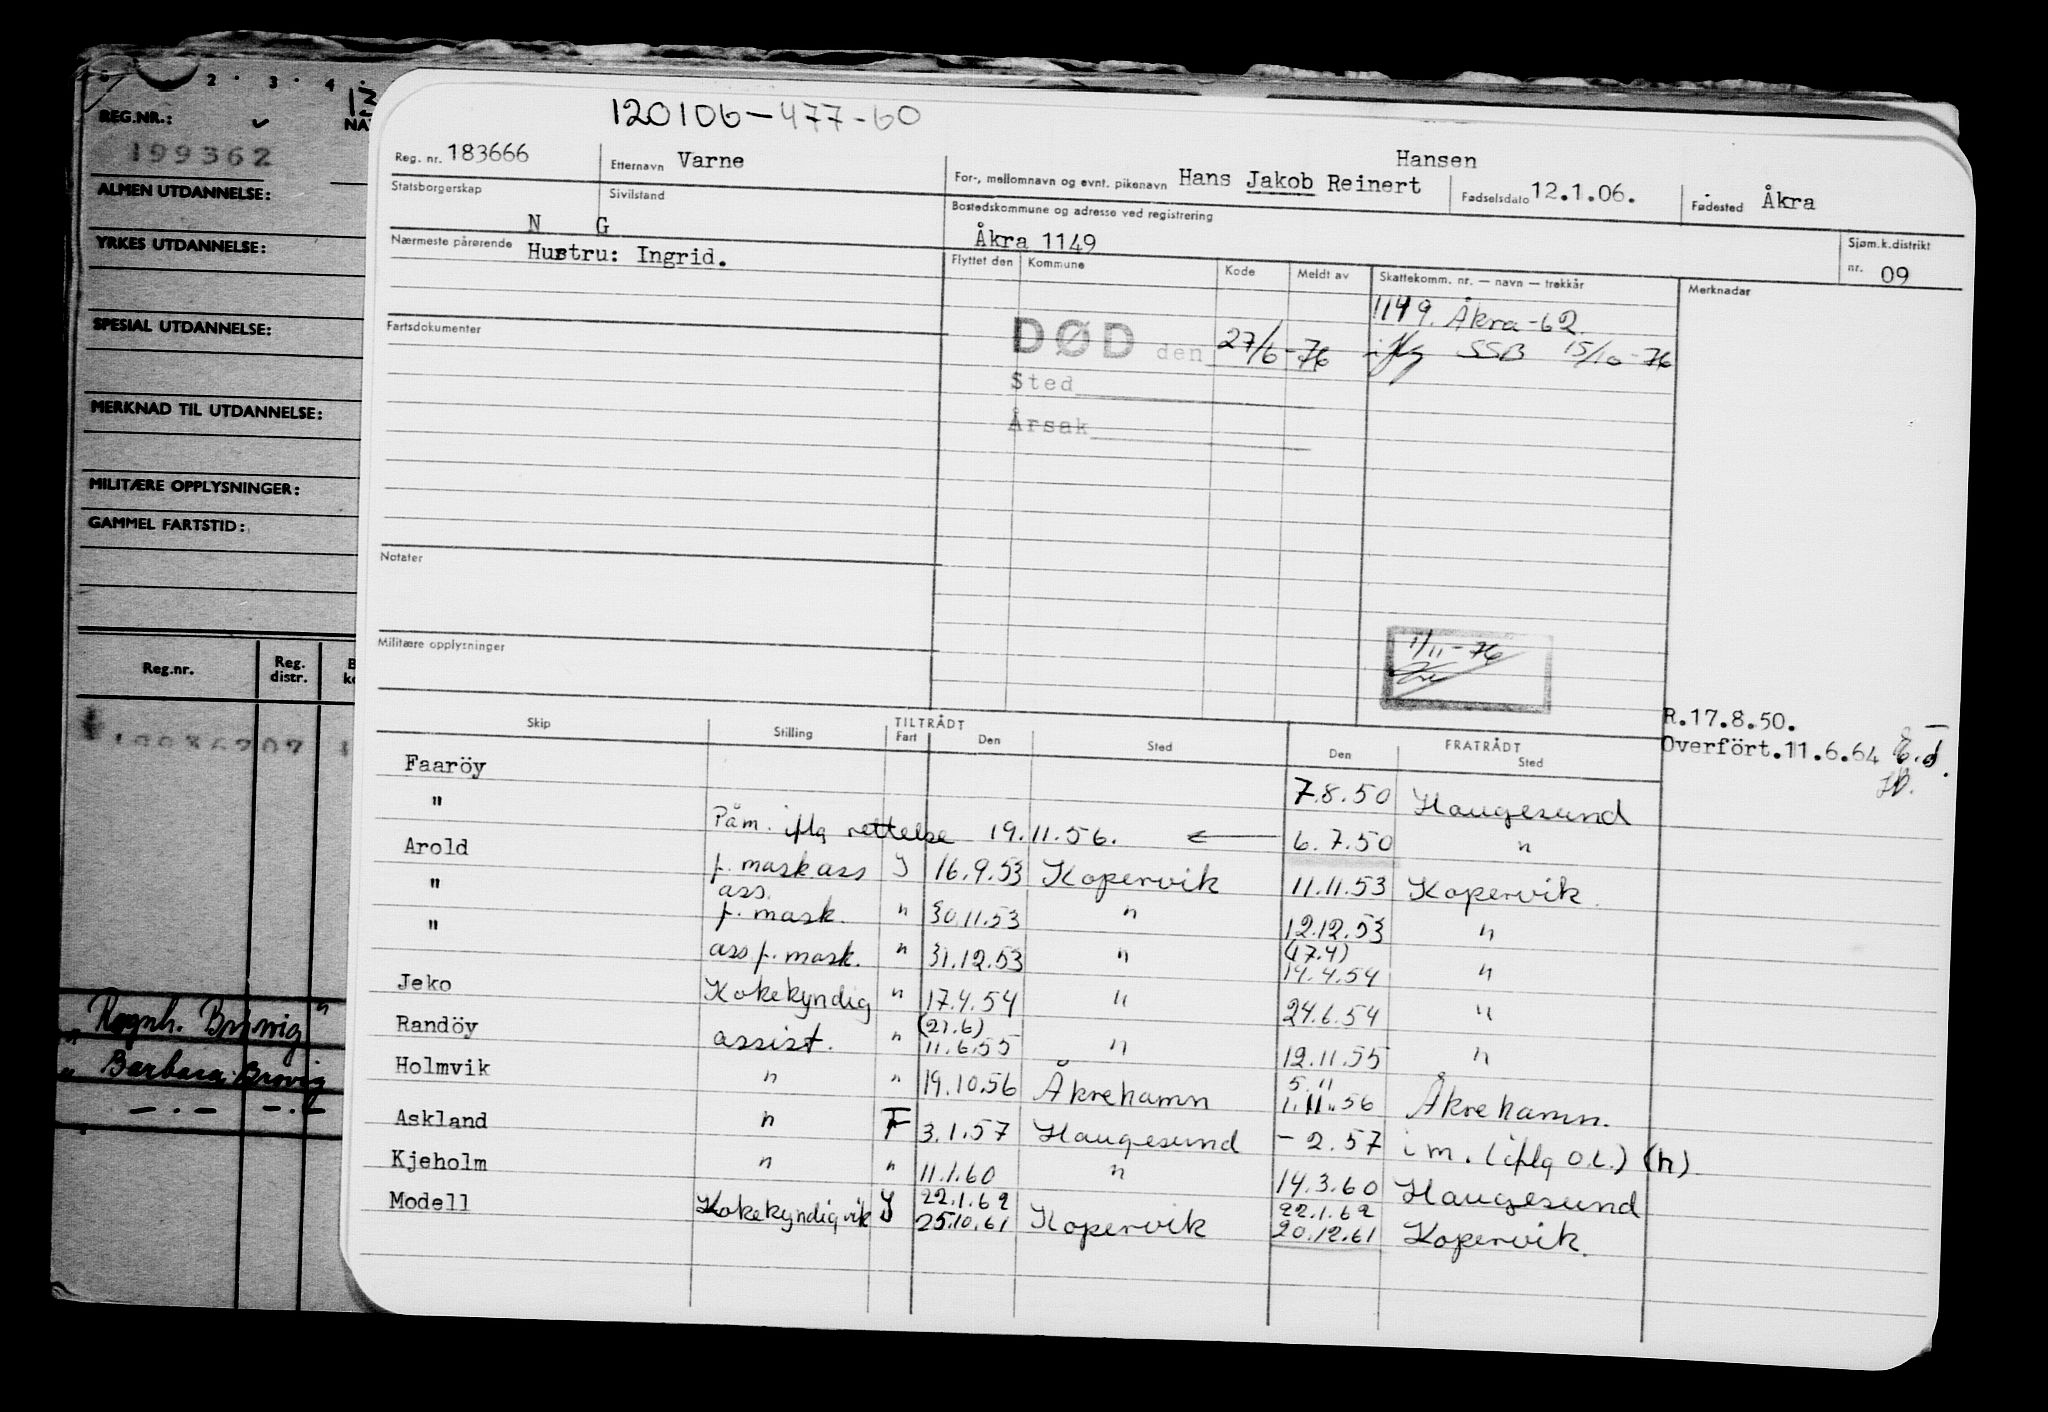 120106-477-60
2 · 3 · 4 ·
REG.NR.:
199362
ALMEN UTDANNELSE:
YRKES UTDANNELSE:
SPESIAL UTDANNELSE:
MERKNAD TIL UTDANNELSE:
MILITÆRE OPPLYSNINGER:
GAMMEL FARTSTID:
Reg.nr. Reg. distr.
" Ragnh. Brøvig "
" Barbara Brovig
Reg. nr. 183666 Etternavn Varne For-, mellomnavn og evnt. pikenavn Hans Jakob Reinert Hansen Fødselsdato 12.1.06. Fødested Åkra
Statsborgerskap N Sivilstand G Bostedskommune og adresse ved registrering Åkra 1149 Sjøm.k.distrikt nr. 09
Nærmeste pårørende Hustru: Ingrid.
Flyttet den Kommune Kode Meldt av Skattekomm. nr. — navn — trekkår Merknader
1149. Åkra-62.
Fartsdokumenter
DØD den 27/6-76 iflg SSB 15/10-76
Sted
Årsak
Notater
Militære opplysninger
11/11-76
R.17.8.50.
Overfört.11.6.64
Skip Stilling TILTRÅDT Fart Den Sted FRATRÅDT Den Sted
Faaröy 7.8.50 Haugesund
" Påm. iflg rettelse 19.11.56. ← 6.7.50 "
Arold f. mask ass J 16.9.53 Kopervik 11.11.53 Kopervik.
" ass. f. mask. " 30.11.53 " 12.12.53 "
" ass f. mask. " 31.12.53 " (17.4) 14.4.54 "
Jeko Kokekyndig " 17.4.54 " 24.6.54 "
Randöy assist. " (21.6) 11.6.55 " 12.11.55 "
Holmvik " " 19.10.56 Åkrehamn 5.11 1.11.56 Åkrehamn.
Askland " F 3.1.57 Haugesund - 2.57 i m. (iflg o.l.) (h)
Kjeholm " " 11.1.60 " 14.3.60 Haugesund
Modell Kokekyndig vik J 22.1.62 25.10.61 Kopervik 22.1.62 20.12.61 Kopervik.